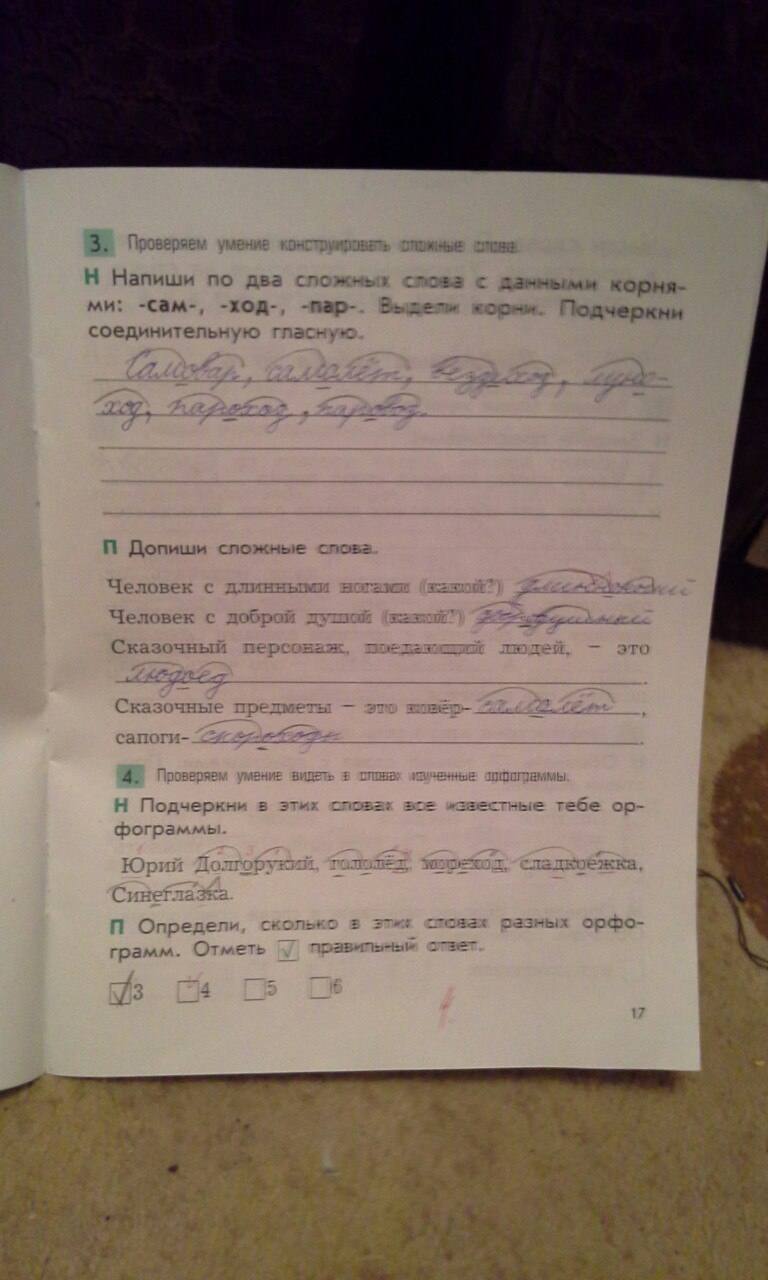 3. Проверяем умение конструировать сложные слова.
Н Напиши по два сложных слова с данными корня-
ми: -сам-, -ход-, -пар-. Выдели корни. Подчеркни
соединительную гласную.
Самовар, самолёт, вездеход, луно-
ход, пароход, паровоз.
П Допиши сложные слова.
Человек с длинными ногами (какой?)
Человек с доброй душой (какой?) добродушный
Сказочный персонаж, поедающий людей, – это
людоед.
Сказочные предметы – это ковёр- самолёт,
сапоги- скороходы.
4. Проверяем умение видеть в словах изученные орфограммы.
Н Подчеркни в этих словах все известные тебе ор-
фограммы.
Юрий Долгорукий, гололёд, мореход, сладкоежка,
Синеглазка.
П Определи, сколько в этих словах разных орфо-
грамм. Отметь √ правильный ответ.
√ 3 4 5 6
4
17